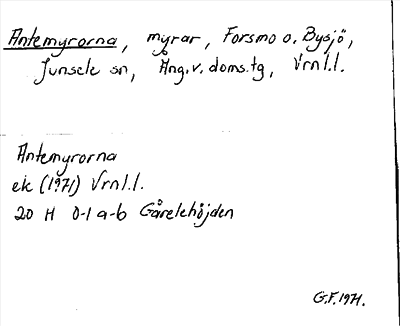 Antemyrorna, myrar, Forsmo o. Bysjö,
Junsele sn, Ång.v. doms.tg, Vrnl.l.
Antemyrorna
ek (1971) Vrnl.l.
20 H 0-1 a-b Gårelehöjden
G.F. 1971.